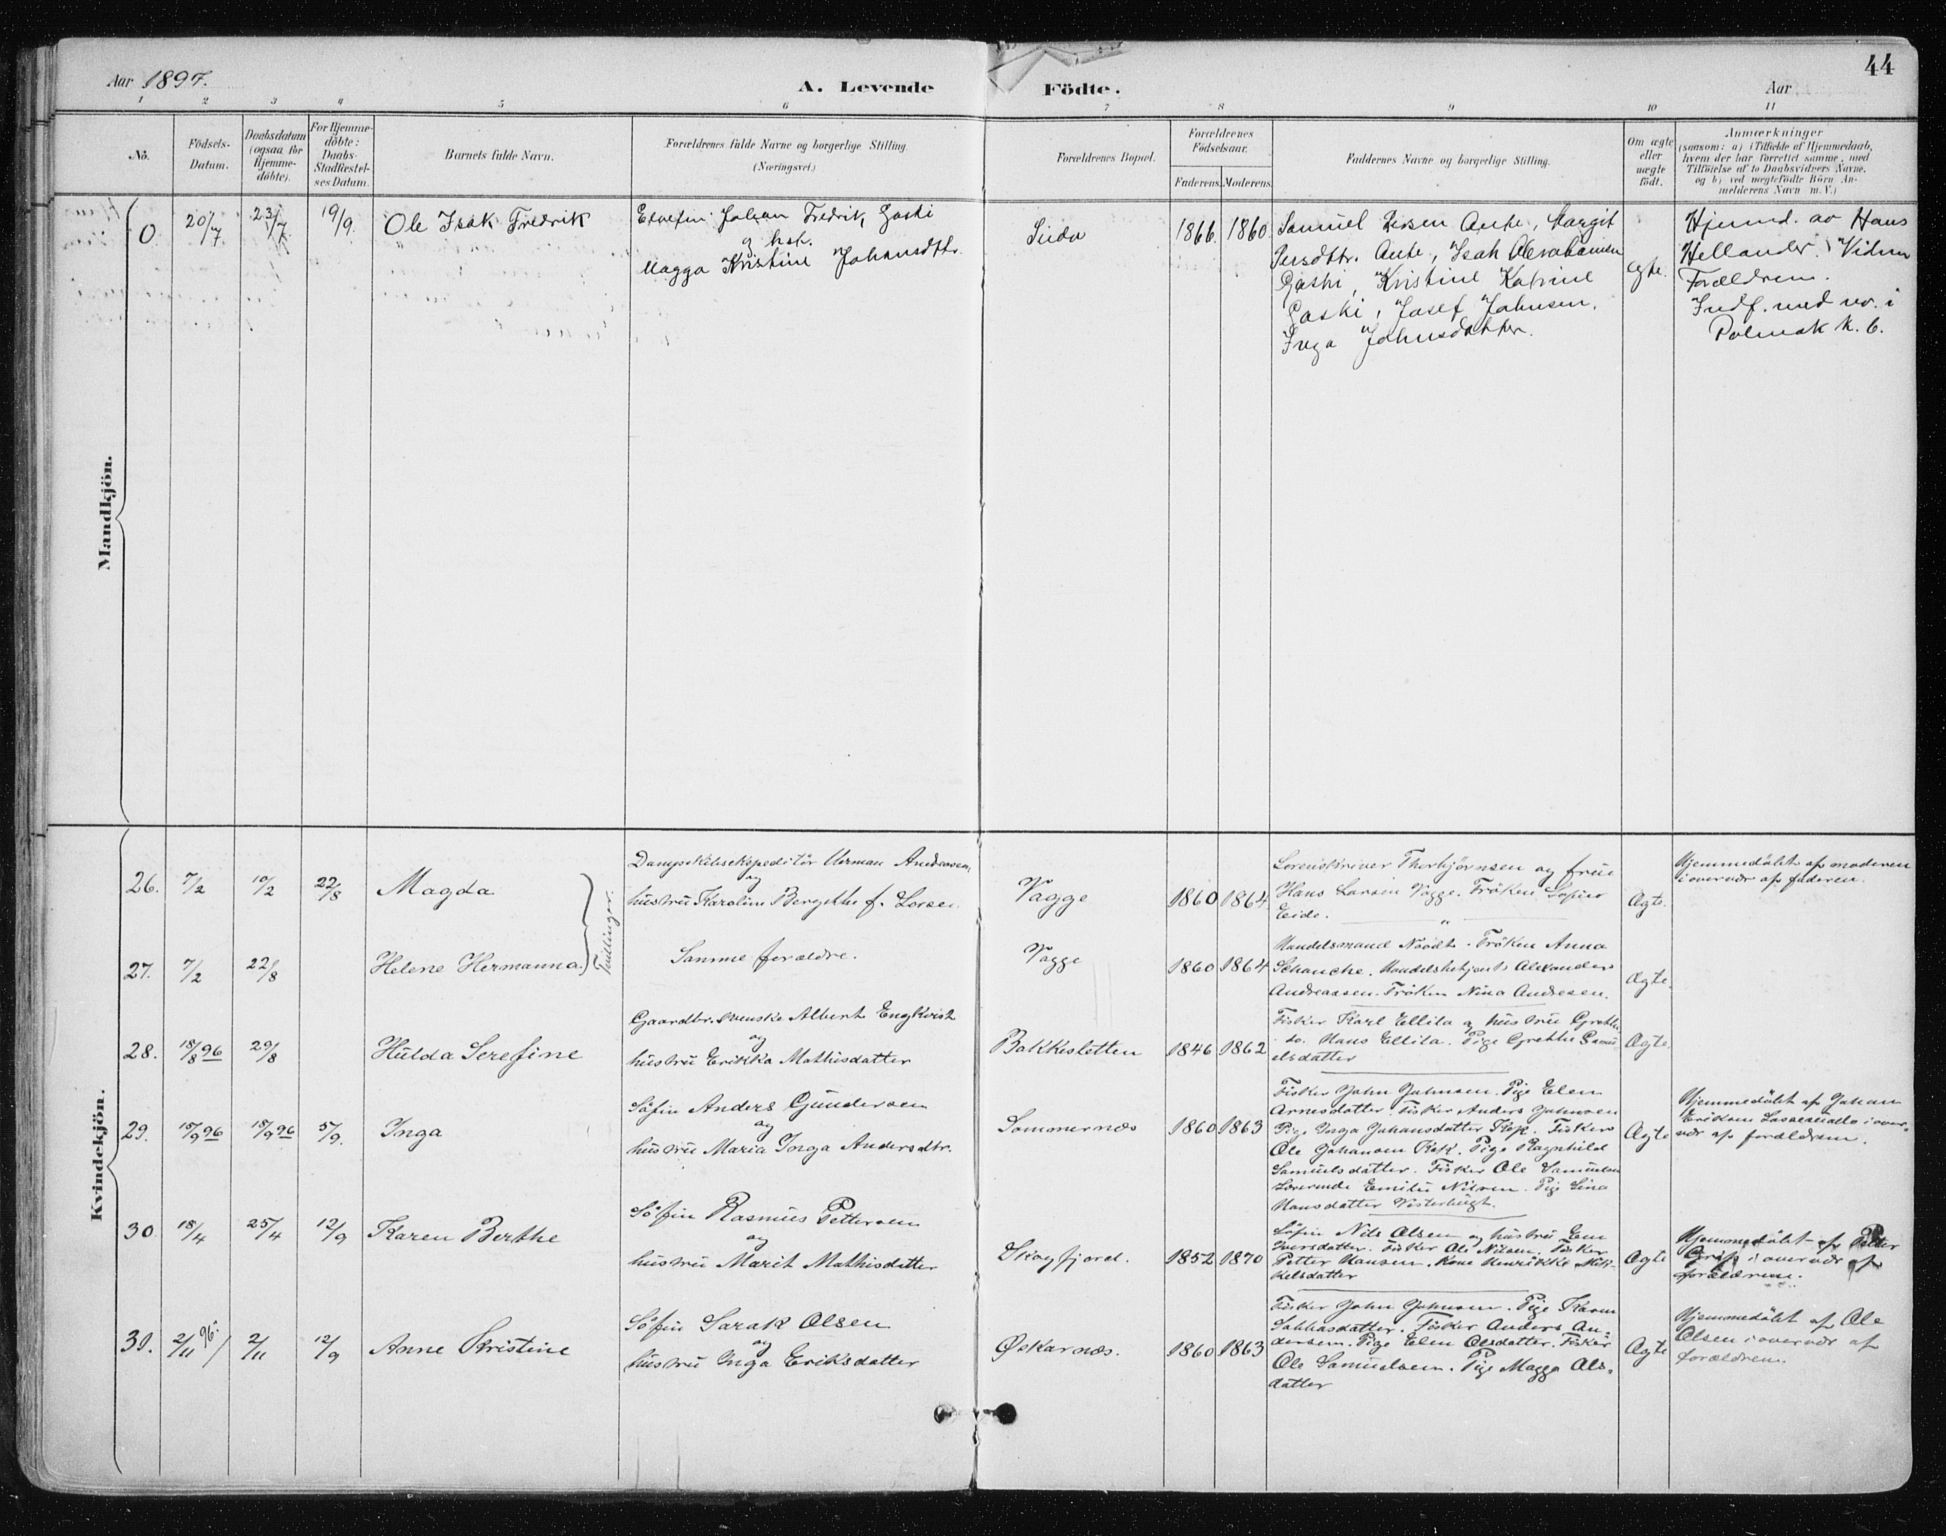 44
Aar 1897.
A. Levende Födte.
Aar
1 2 3 4 5 6 7 8 9 10 11
No.
Födsels-Datum.
Daabsdatum (ogsaa for Hjemme-döbte).
For Hjemme-döbte: Daabs-Stadfæstel-ses Datum.
Barnets fulde Navn.
Forældrenes fulde Navne og borgerlige Stilling (Næringsvei.)
Forældrenes Bopæl.
Forældrenes Födselsaar.
Faderens. Moderens.
Faddernes Navne og borgerlige Stilling.
Om ægte eller uægte födt.
Anmærkninger
(saasom: a) i Tilfælde af Hjemmedaab,
hvem der har forrettet samme, med
Tilföielse af to Daabsvidners Navne,
og b) ved uægtefödte Börn An-
melderens Navn m. V.)
Mandkjön.
0 20/7 23/7 19/9. Ole Isak Fredrik
Johan Fredrik Gaski
og hstr.
Magga Kristine Johansdtr.
Siida 1866. 1860
Samuel Ante, Margit
Persdtr. Ante, Isak Abrahamsen
Gaski, Kristine Katrine
Gaski, Josef Johnsen,
Inga Johnsdatter.
ægte.
Hjemd. av Hans
Hellander. Vidner
Forældrene.
Indf. med no. i
Polmak k. b.
Kvindekjön.
26. 7/2 10/2 22/8 Magda
Tvillinger.
Dampskibsekspeditör Herman Andreasen,
og
hustru Karoline Bergithe f.
Vagge 1860 1864
Sorenskriver Thorbjörnsen og frue
Hans Larsen Vagge. Fröken
Eide.
Ægte.
Hjemmedöbt af moderen
i overvær af faderen.
27. 7/2 22/8 Helene Hermanna.
Samme forældre.
Vagge 1860 1864
Handelsmand Noodt. Fröken Anna
Schanche. Handelsbetjent Alexander
Andreassen. Fröken Nina Andresen.
Ægte.
28. 18/8 96 29/8 Hulda Serefine
Gaardbr. svenske Albert Engkvist
og
hustru Erikka Mathisdatter
Bakkesletten 1846 1862
Fisker Karl Ellila og hustru Grethe
do. Hans Ellila. Pige Grethe Samu-
elsdatter
Ægte.
29. 15/9 96 15/9 96 5/9. Inga
Söfin Anders Gundersen
og
hustru Maria Inga Andersdtr.
Sommernæs 1860 1863
Fisker John Johnsen. Pige Elen
Arnesdatter. Fisker Anders Johnsen
Pige Inga Johansdatter Kjk. Fisker
Ole Johansen Kjk. Pige Ragnhild
Samuelsdatter. Fisker Ole Samuelsen
Lærerinde Emilie Nilsen. Pige Lina
Hansdatter
Ægte
Hjemmedöbt af Johan
Eriksen i over-
vær af forældrene.
30. 18/4 25/4 12/9 Karen Berthe
Söfin Rasmus Pettersen
og
hustru Marit Mathisdatter
Skogfjord. 1852 1870
Söfin Nils Olsen og hustru Elen
Iversdatter. Fisker Ole Nilsen. Fisker
Petter Hansen. Kone Henrikke Mik-
kelsdatter
Ægte
Hjemmedöbt af Petter
i overvær af
forældrene.
31. 2/11 96. 2/11 12/9 Anne Kristine
Söfin Sarak Olsen
og
hustru Inga Eriksdatter
Øskarnæs. 1860 1863
Fisker John Johnsen. Pige Karen
Sabbasdatter. Fisker Anders An-
dersen. Pige Elen Olsdatter. Fisker
Ole Samuelsen. Pige Magga Ols-
datter
Ægte
Hjemmedöbt af Ole
Olsen i overvær af
forældrene.